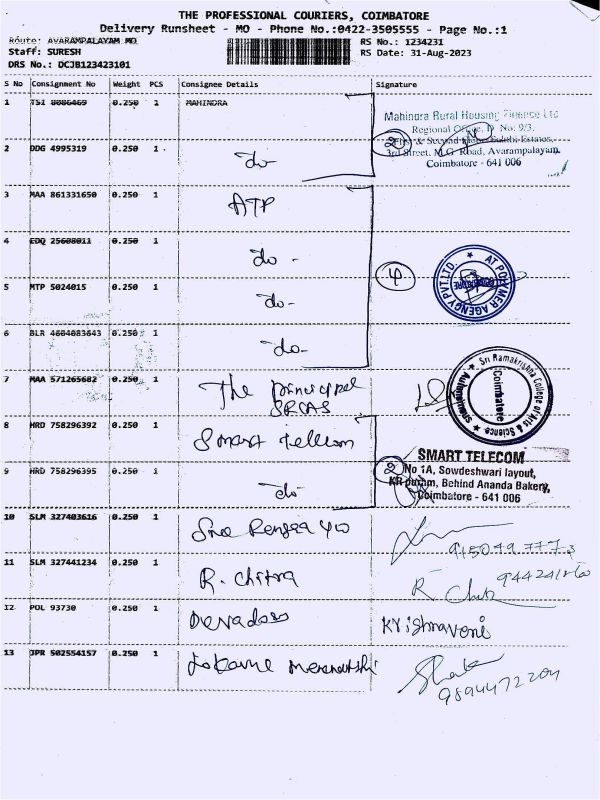 THE PROFESSIONAL COURIERS, COIMBATORE
Delivery Runsheet - MO - Phone No.:0422-3505555 - Page No.:1
Route: AVARAMPALAYAM MO
RS No.: 1234231
Staff: SURESH
RS Date: 31-Aug-2023
DRS No.: DCJB123423101
S No Consignment No Weight PCS Consignee Details Signature
1 TSI 8086469 0.250 1 MAHINDRA
Mahindra Rural Housing Finance Ltd
Regional Office, D No: 9/3,
& Second Floor, Sakthi Estates,
3rd Street, M.G. Road, Avarampalayam,
Coimbatore - 641 006
2 DDG 4995319 0.250 1 do
2
3 MAA 861331650 0.250 1 ATP
4 EDQ 25608011 0.250 1 do -
4
AT POLYMER AGENCY PVT.LTD.
COIMBATORE
5 MTP 5024015 0.250 1 do -
6 BLR 4604083643 0.250 1 do-
7 MAA 571265682 0.250 1 The principal
SRCAS
Sri Ramakrishna College of Arts & Science
Autonomous
Coimbatore
8 HRD 758296392 0.250 1 Smart Telecom
SMART TELECOM
No 1A, Sowdeshwari layout,
KR puram, Behind Ananda Bakery,
Coimbatore - 641 006
9 HRD 758296395 0.250 1 do
2
10 SLM 327403616 0.250 1
11 SLM 327441234 0.250 1 R. Chitra
12 POL 93730 0.250 1 Devadoss Krishnaveni
13 JPR 502554157 0.250 1